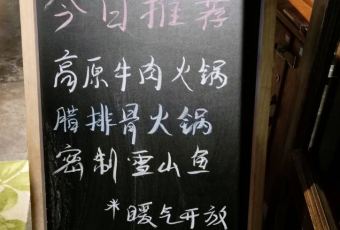 今日推荐
高原牛肉火锅
腊排骨火锅
密制雪山鱼
*暖气开放